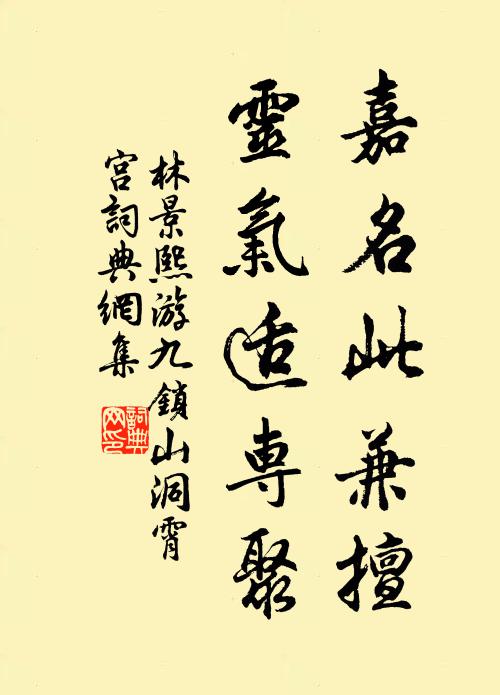 嘉名此兼擅
靈氣适專聚
林景熙游九鎖山洞霄
宫詞典網集
詞典網印